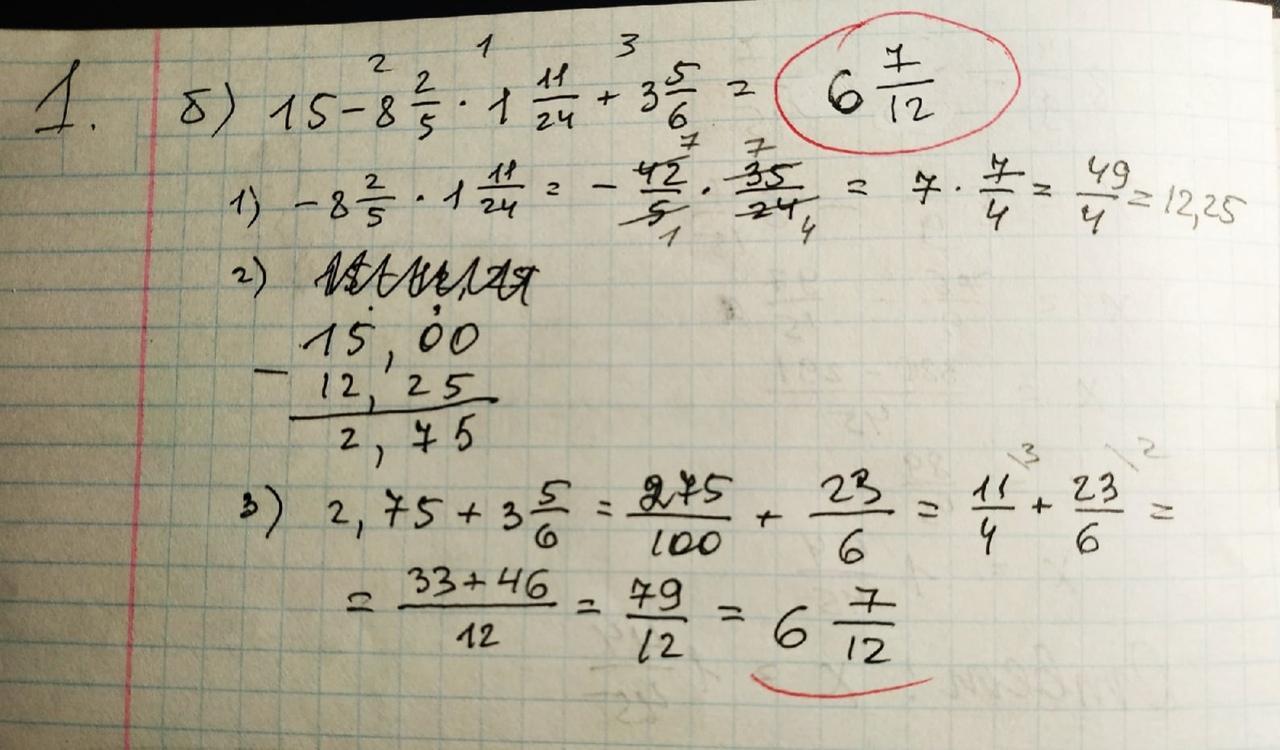 1. б) 15 - 8 2/5 · 1 11/24 + 3 5/6 = 6 7/12
1) - 8 2/5 · 1 11/24 = - 42/5 · 35/24 = 7 · 7/4 = 49/4 = 12,25
2)
15,00
- 12,25
2,75
3) 2,75 + 3 5/6 = 275/100 + 23/6 = 11/4 + 23/6 =
= 33+46/12 = 79/12 = 6 7/12